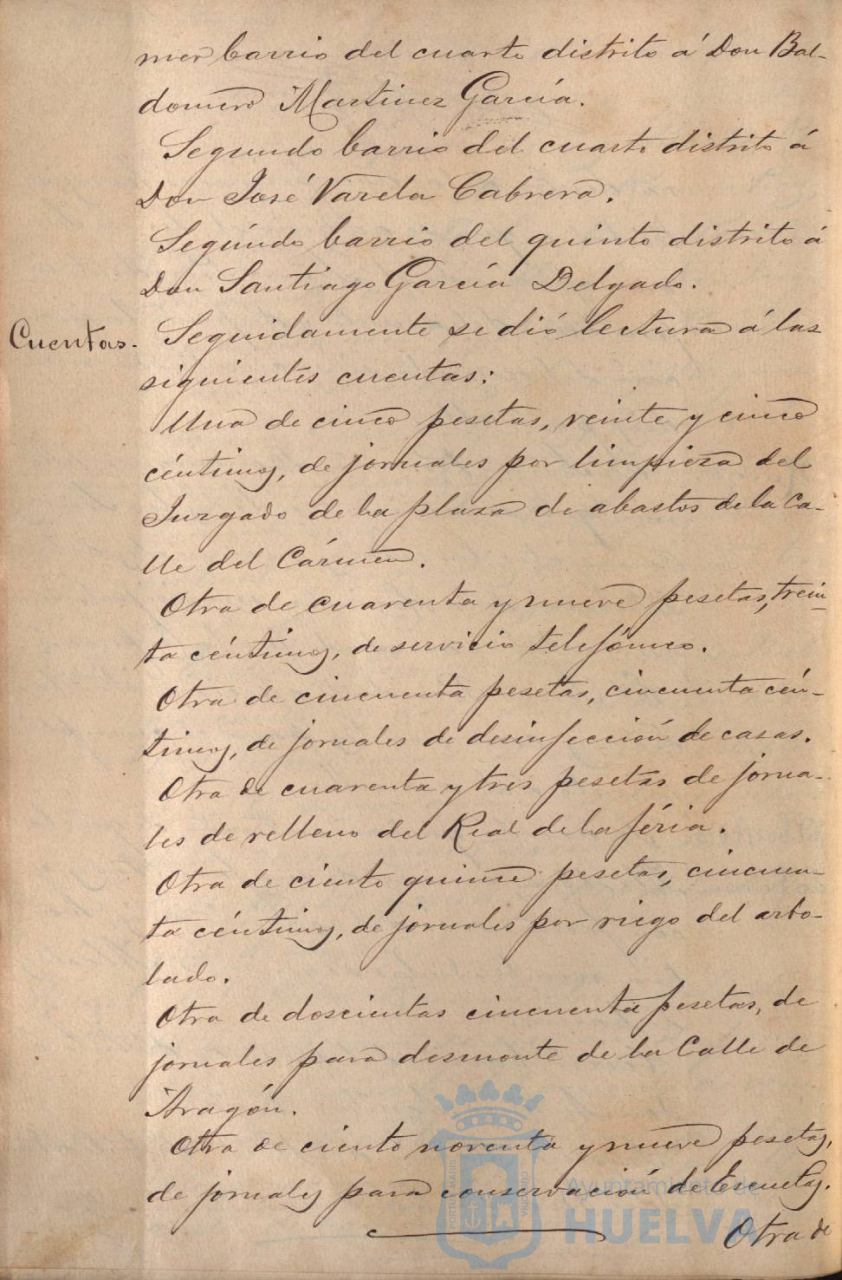 mer barrio del cuarto distrito á Don Bal-
domero Martinez García.
Segundo barrio del cuarto distrito á
Don José Varela Cabrera.
Segúndo barrio del quinto distrito á
Don Santiago García Delgado.
Cuentas. Seguidamente se dió lectura á las
siguientes cuentas:
Una de cinco pesetas, veinte y cinco
céntimos, de jornales por limpieza del
Juzgado de la plaza de abastos de la Ca-
lle del Cármen.
Otra de cuarenta y nueve pesetas, trein-
ta céntimos, de servicio telefónico.
Otra de cincuenta pesetas, cincuenta cén-
timos, de jornales de desinfección de casas.
Otra de cuarenta y tres pesetas de jorna-
les de relleno del Real de la féria.
Otra de ciento quince pesetas, cincuen-
ta céntimos, de jornales por riego del arbo-
lado.
Otra de doscientas cincuenta pesetas, de
jornales para desmonte de la Calle de
Aragón.
Otra de ciento noventa y nueve pesetas,
de jornales para conservación de Escuelas.
Otra de
Ayuntamiento de
HUELVA